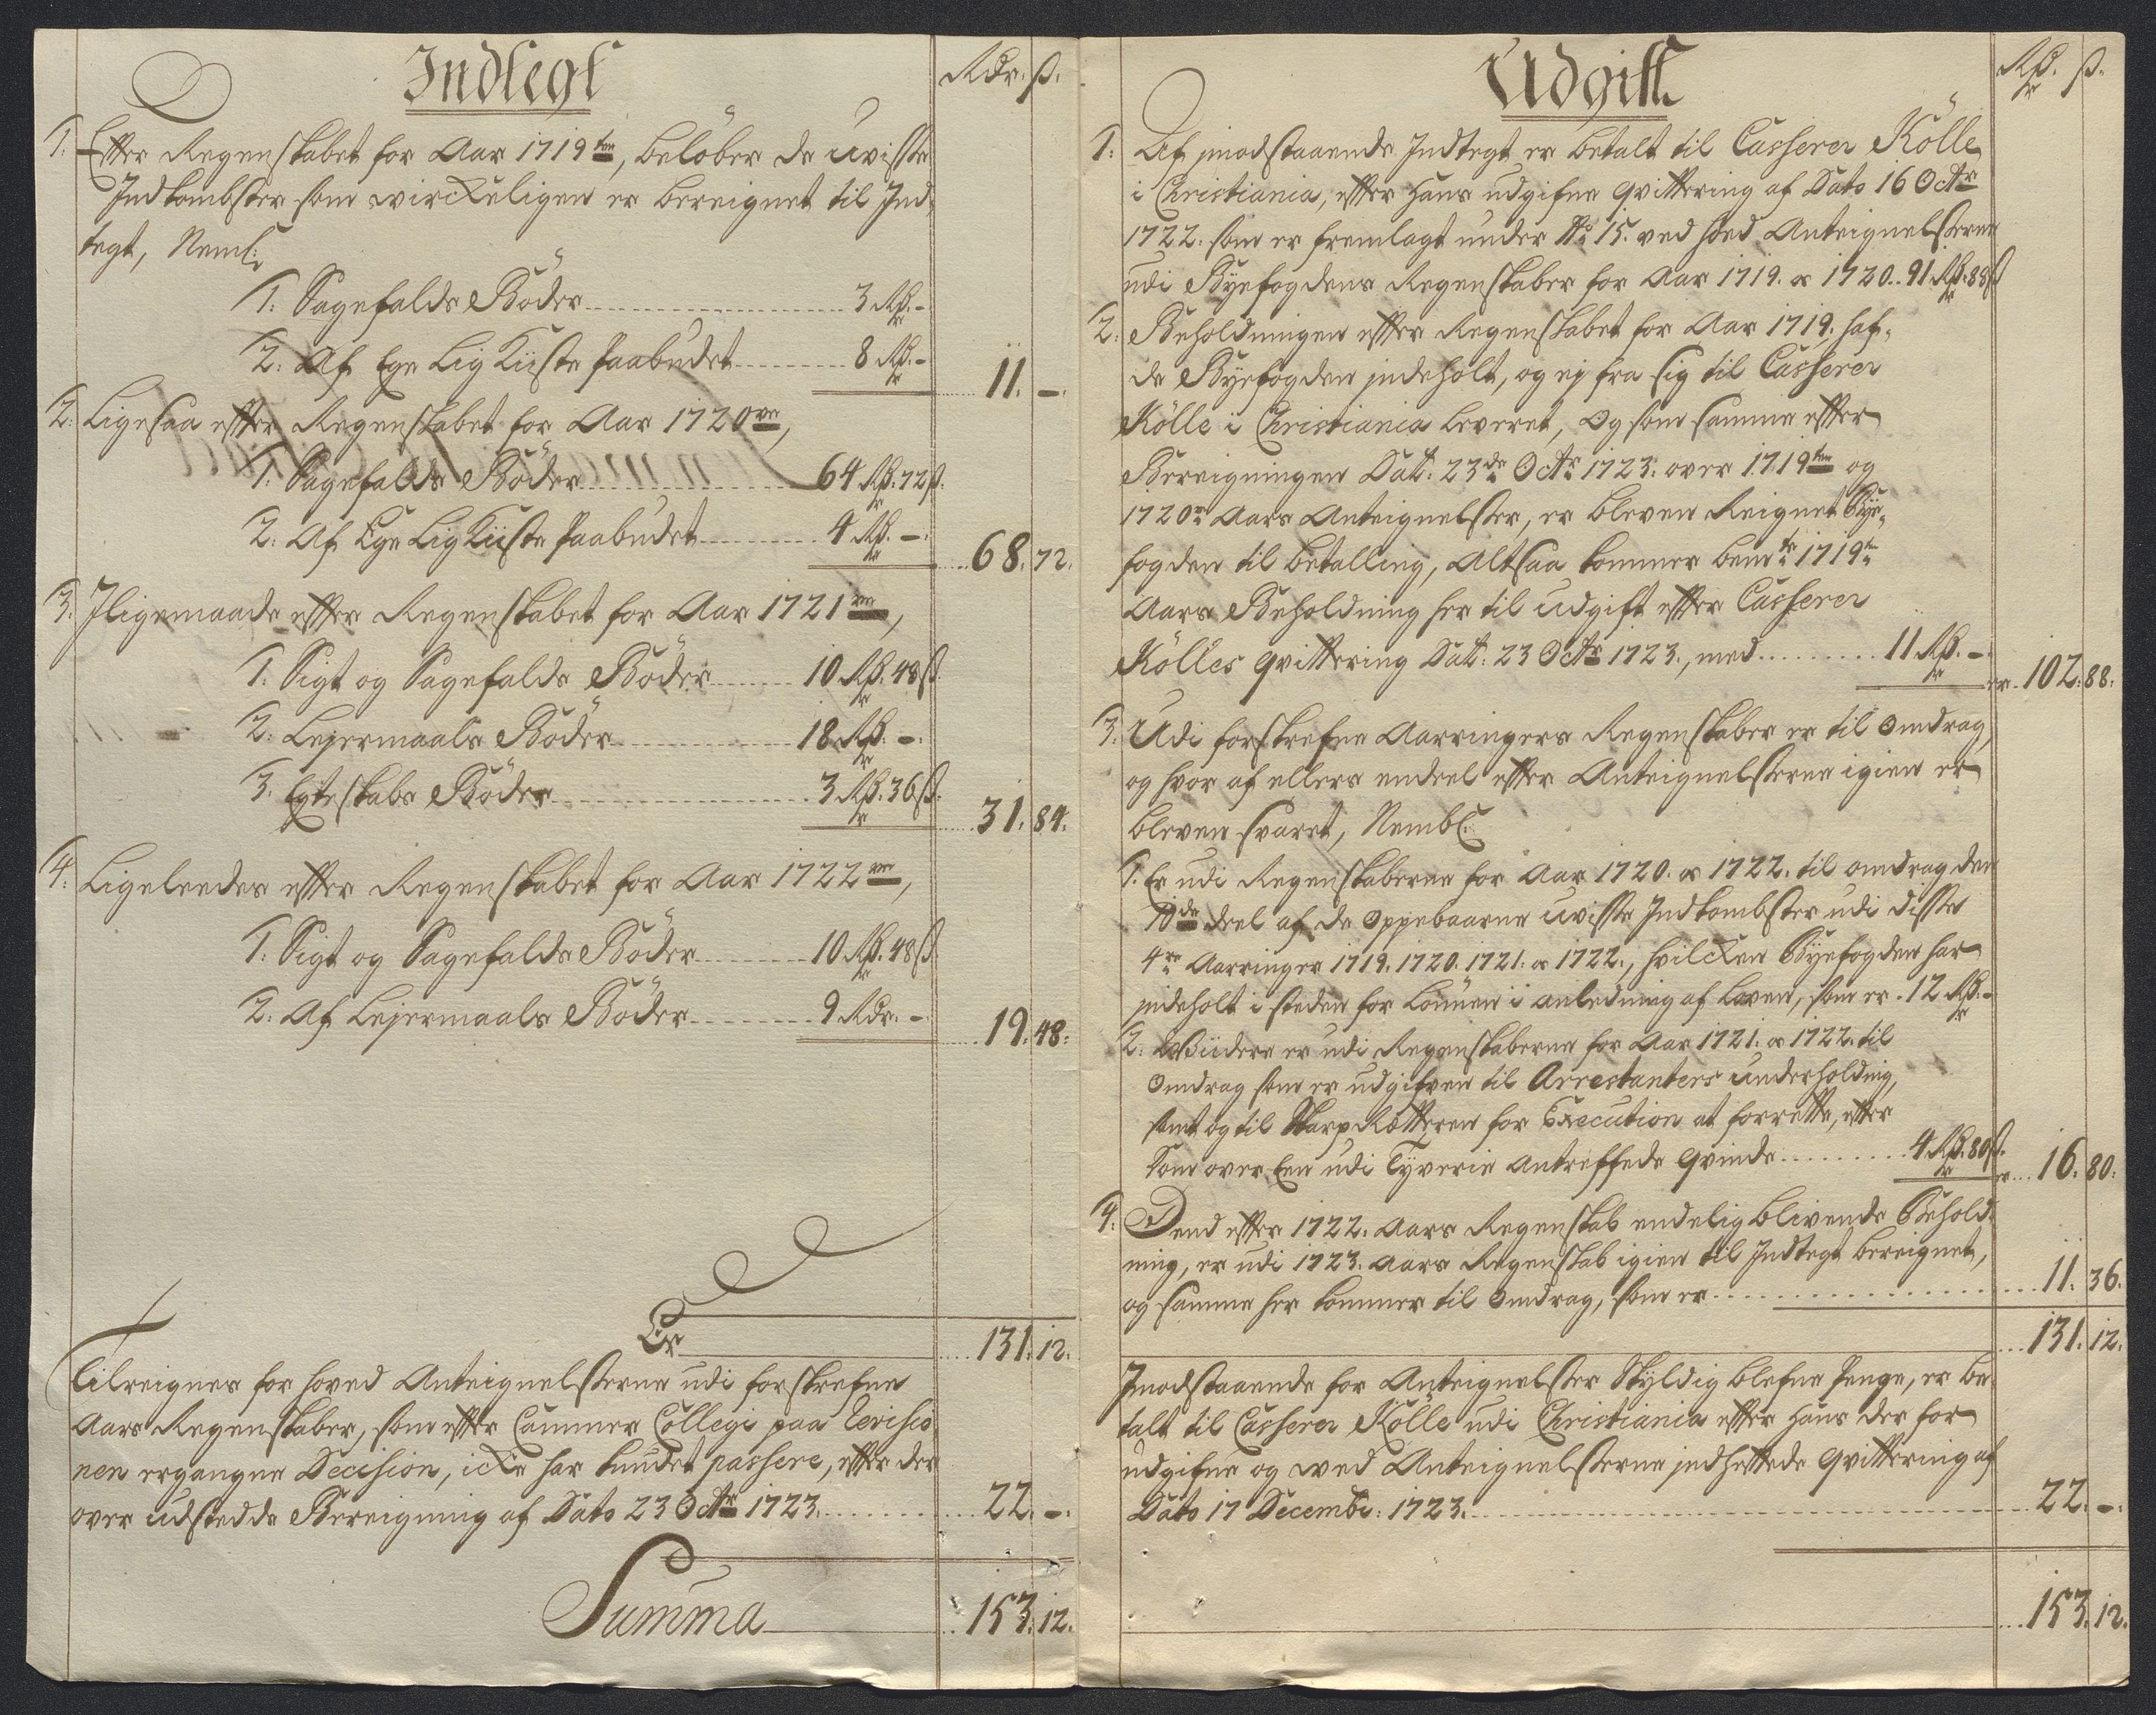 Indtegt
Rdr. ß.
1. Efter Regenskabet for Aar 1719ten, belöber de uvisse
Indkombster som wirckeligen er bereignet til Ind,,
tegt, Neml:
1. Sagefalds Böder 3 Rdr. -
2. Af Ege Lig Kiiste Paabudet 8 Rdr. - 11. -.
2. Ligesaa efter Regenskabet for Aar 1720ve,
1. Sagefalds Böder 64 Rdr. 72 ß.
2. Af Ege Lig Kiiste Paabudet 4 Rdr. -. 68. 72.
3. Iligemaade efter Regenskabet for Aar 1721ve,
1. Sigt og Sagefalds Böder 10 Rdr. 48 ß.
2. Lejermaals Böder 18 Rdr. -.
3. Egteskabs Böder 3 Rdr. 36 ß. 31. 84.
4. Ligeleedes efter Regenskabet for Aar 1722ve,
1. Sigt og Sagefalds Böder 10 Rdr. 48 ß
2. Af Lejermaals Böder 9 Rdr. - 19. 48.
Er 131. 12.
Tilreignes for hoved Anteignelsterne udi forskrefne
Aars Regenskaber, som efter Cammer Collegi paa Revisio
nen ergangne Decision, icke har kundet passere, efter der
over udstedde Bereigning af Dato 23 Octr 1723. 22. -.
Summa 153. 12.
Udgift
Rdr. ß.
1. Af imodstaaende Indtegt er betalt til Casserer Kölle
i Christiania, efter hans udgifne qvittering af Dato 16 Octr
1722. som er fremlagt under No 15. ved hoved Anteignelsterne
udi Byefogdens Regenskaber for Aar 1719. & 1720. 91 Rdr. 88 ß
2. Beholdningen efter Regenskabet for Aar 1719. haf,,
de Byefogden indeholt, og ej fra sig til Casserer
Kölle i Christiania leveret, Og som samme efter
Bereigningen Dat: 23de Octr 1723. over 1719ten og
1720ve Aars Anteignelster, er bleven Reignet Bye,,
fogden til betalling, Altsaa kommer bemte 1719ten
Aars Beholdning her til udgift efter Casserer
Kölles qvittering Dat: 23 Octr 1723., med 11 Rdr. -. er 102. 88.
3. Udi forskrefne Aarringers Regenskaber er til Omdrag,
og hvor af ellers endeel efter Anteignelsterne igien er
bleven svaret, Nembl:
1. Er udi Regenskaberne for Aar 1720. & 1722. til omdrag den
10de deel af de Oppebaarne uvisse Indkombster udi disse
4re Aarringer 1719. 1720. 1721. & 1722., hvilcken Byefogden har
indeholt i steden for Lönnen i anledning af loven, som er 12 Rdr. -
2. Wiidere er udi Regenskaberne for Aar 1721. & 1722. til
Omdrag som er udgifven til Arrestanters underholding,
samt og til Skarp Rötteren for Execution at forrette, efter
Dom over Een udi Tyverie antreffede qvinde 4 Rdr. 80 ß. er 16. 80.
4. Dend efter 1722. Aars Regenskab endelig blivende Behold,,
ning, er udi 1723. Aars Regenskab igien til Indtegt bereignet,
og samme her kommer til Omdrag, som er 11. 36.
131. 12.
Imodstaaende for Anteignelster Skyldig blefne Penge, er be
talt til Casserer Kölle udi Christiania efter hans der for
udgifne og wed Anteignelsterne indheftede qvittering af
Dato 17 Decembr: 1723. 22. -.
153. 12.